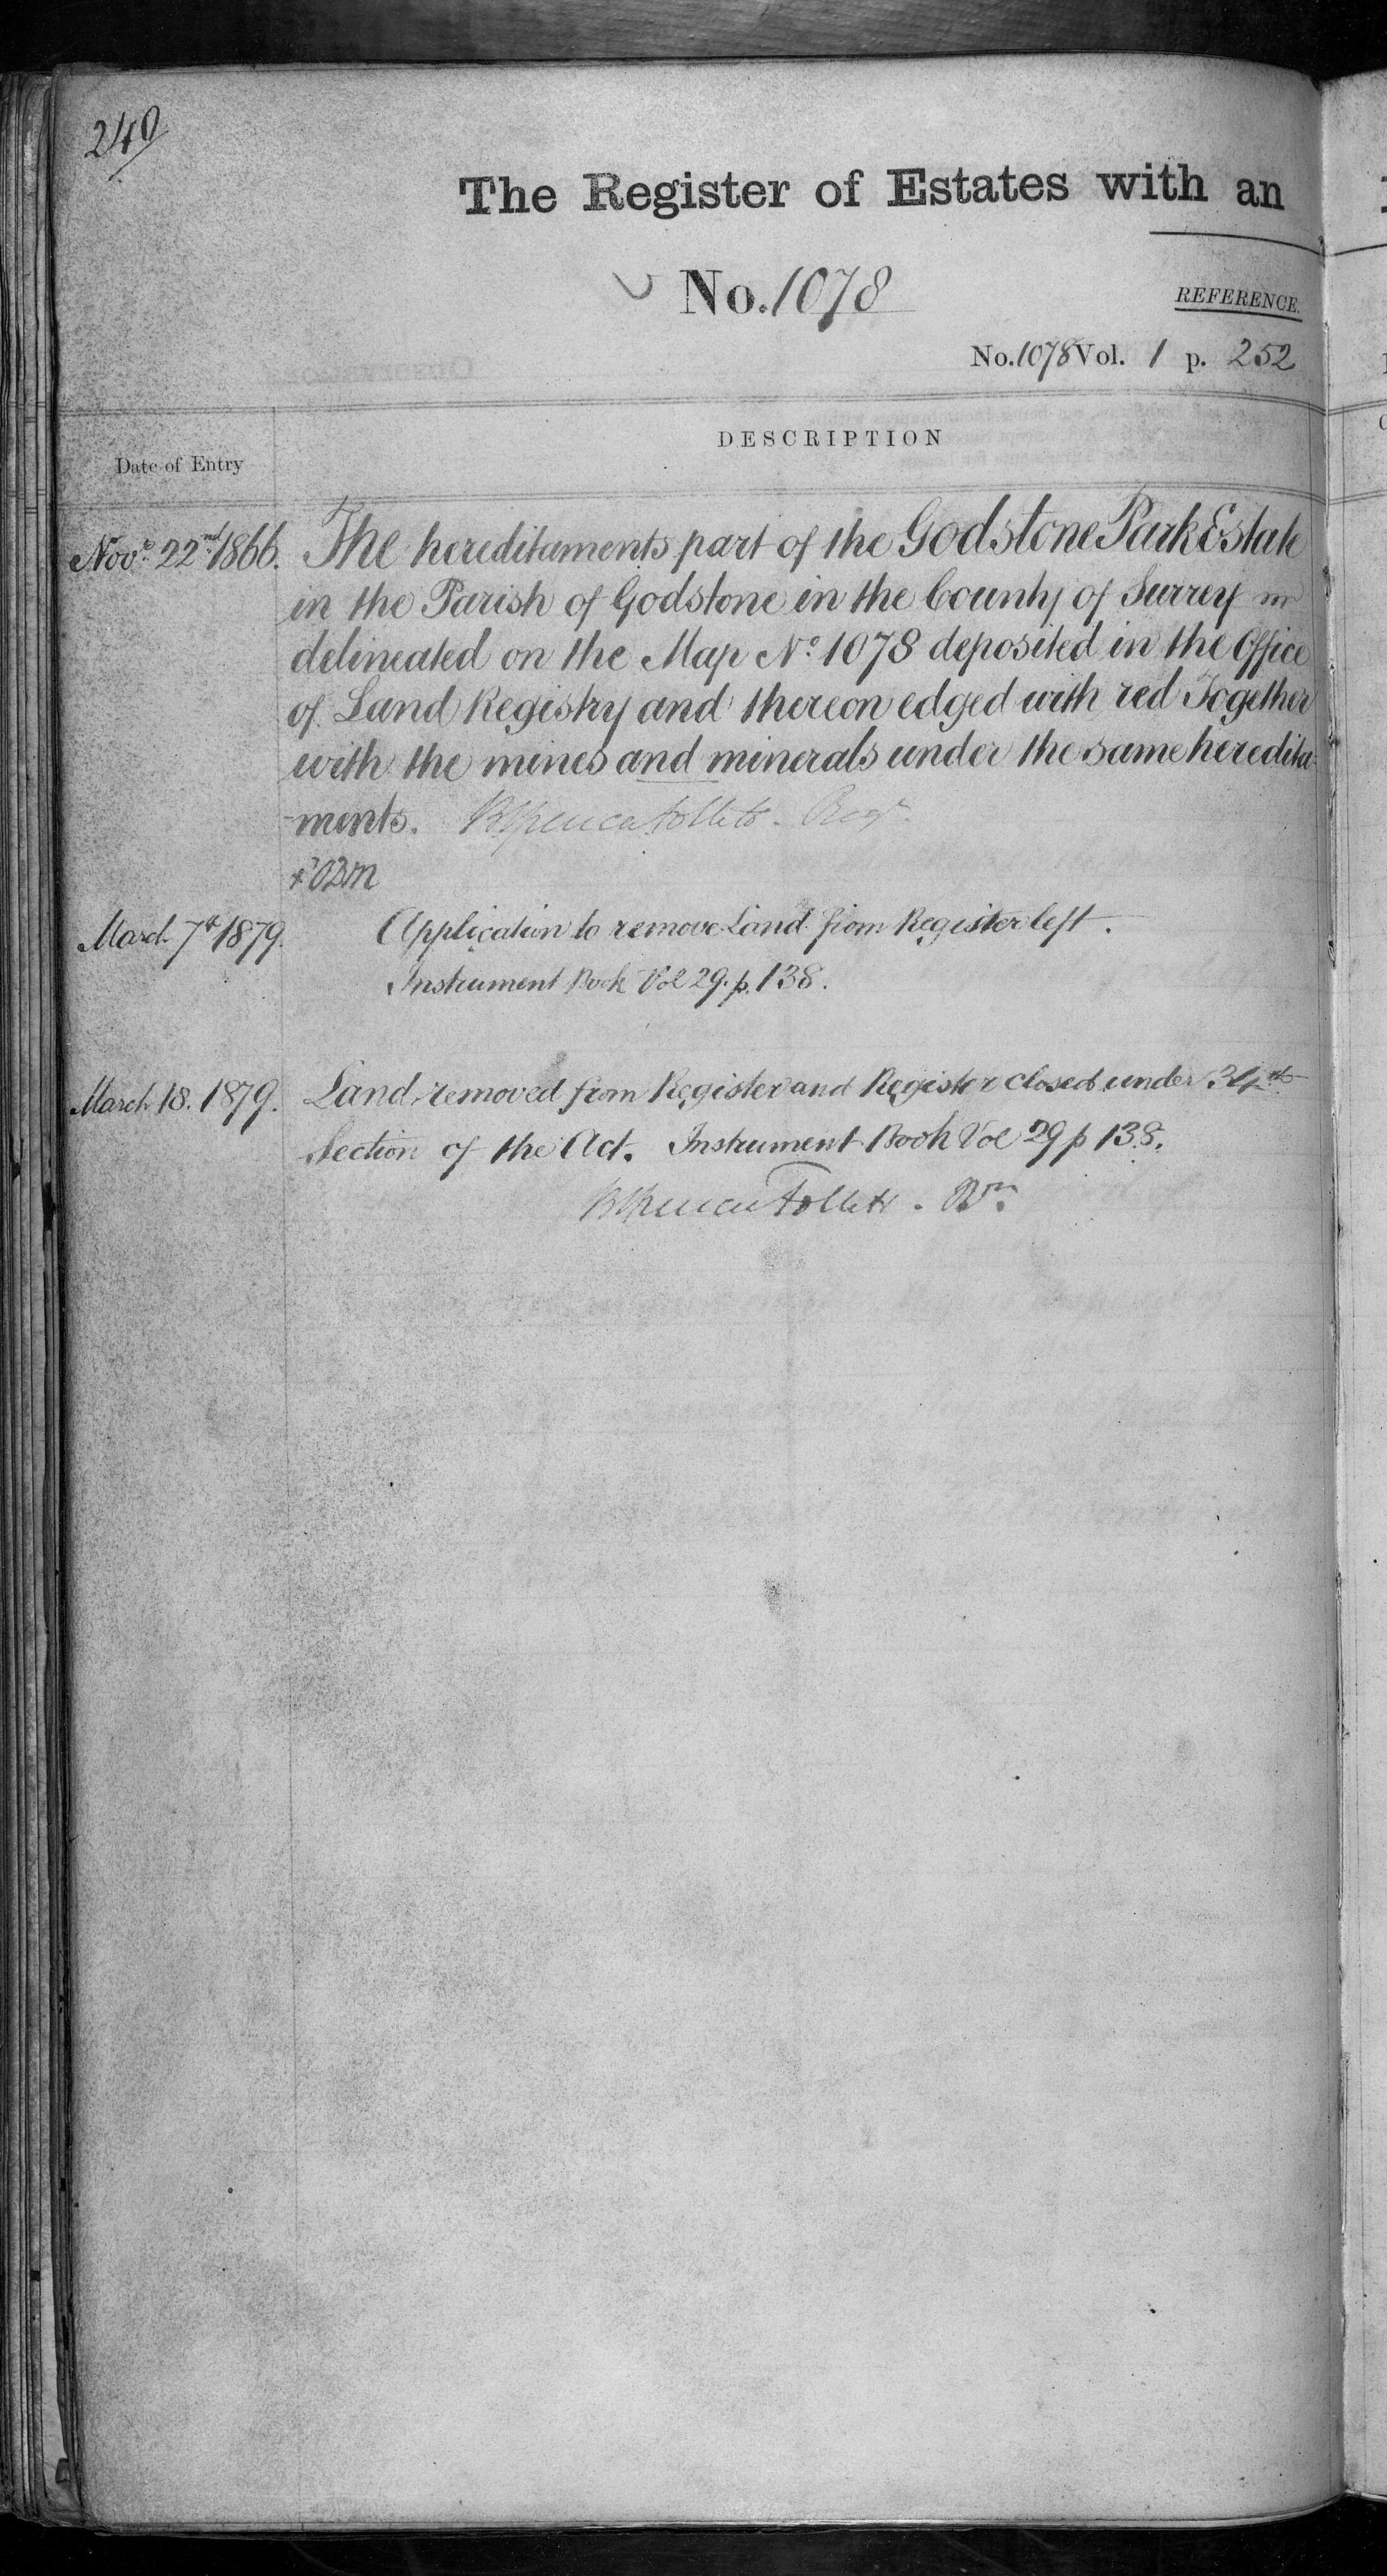 240
The Register of Estates with an
No. 1078
REFERENCE.
No. 1078 Vol. 1 p. 252
DESCRIPTION
Date of Entry
Novr. 22nd 1866. The hereditaments part of the Godstone Park Estate
in the Parish of Godstone in the County of Surrey
delineated on the Map No. 1078 deposited in the Office
of Land Registry and thereon edged with red Together
with the mines and minerals under the same heredita-
-ments. Brent Spencer Follett. Regr.
March 7th 1879. Application to remove Land from Register left.
Instrument Book Vol 29. p. 138.
March 18. 1879. Land removed from Register and Register closed under 34th
Section of the Act. Instrument Book Vol 29 p 138.
B Spencer Follett.